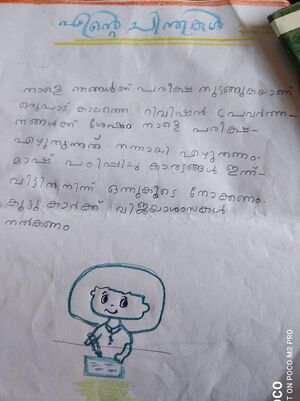 എന്റെ ചിന്തകൾ
നാളെ ഞങ്ങൾക്ക് പരീക്ഷ തുടങ്ങുകയാണ്
ഒരുപാട് കാലത്തെ റിവിഷൻ പ്രവർത്ത-
നങ്ങൾക്ക് ശേഷം നാളെ പരീക്ഷ-
എഴുതുന്നത് നന്നായി എഴുതണം.
മാഷ് പഠിപ്പിച്ച കാര്യങ്ങൾ ഇന്ന്-
വീട്ടിൽ നിന്ന് ഒന്നുകൂടെ നോക്കണം.
കൂട്ടുകാർക്ക് വിജയാശംസകൾ
നൽകണം
POCO
SHOT ON POCO M2 PRO